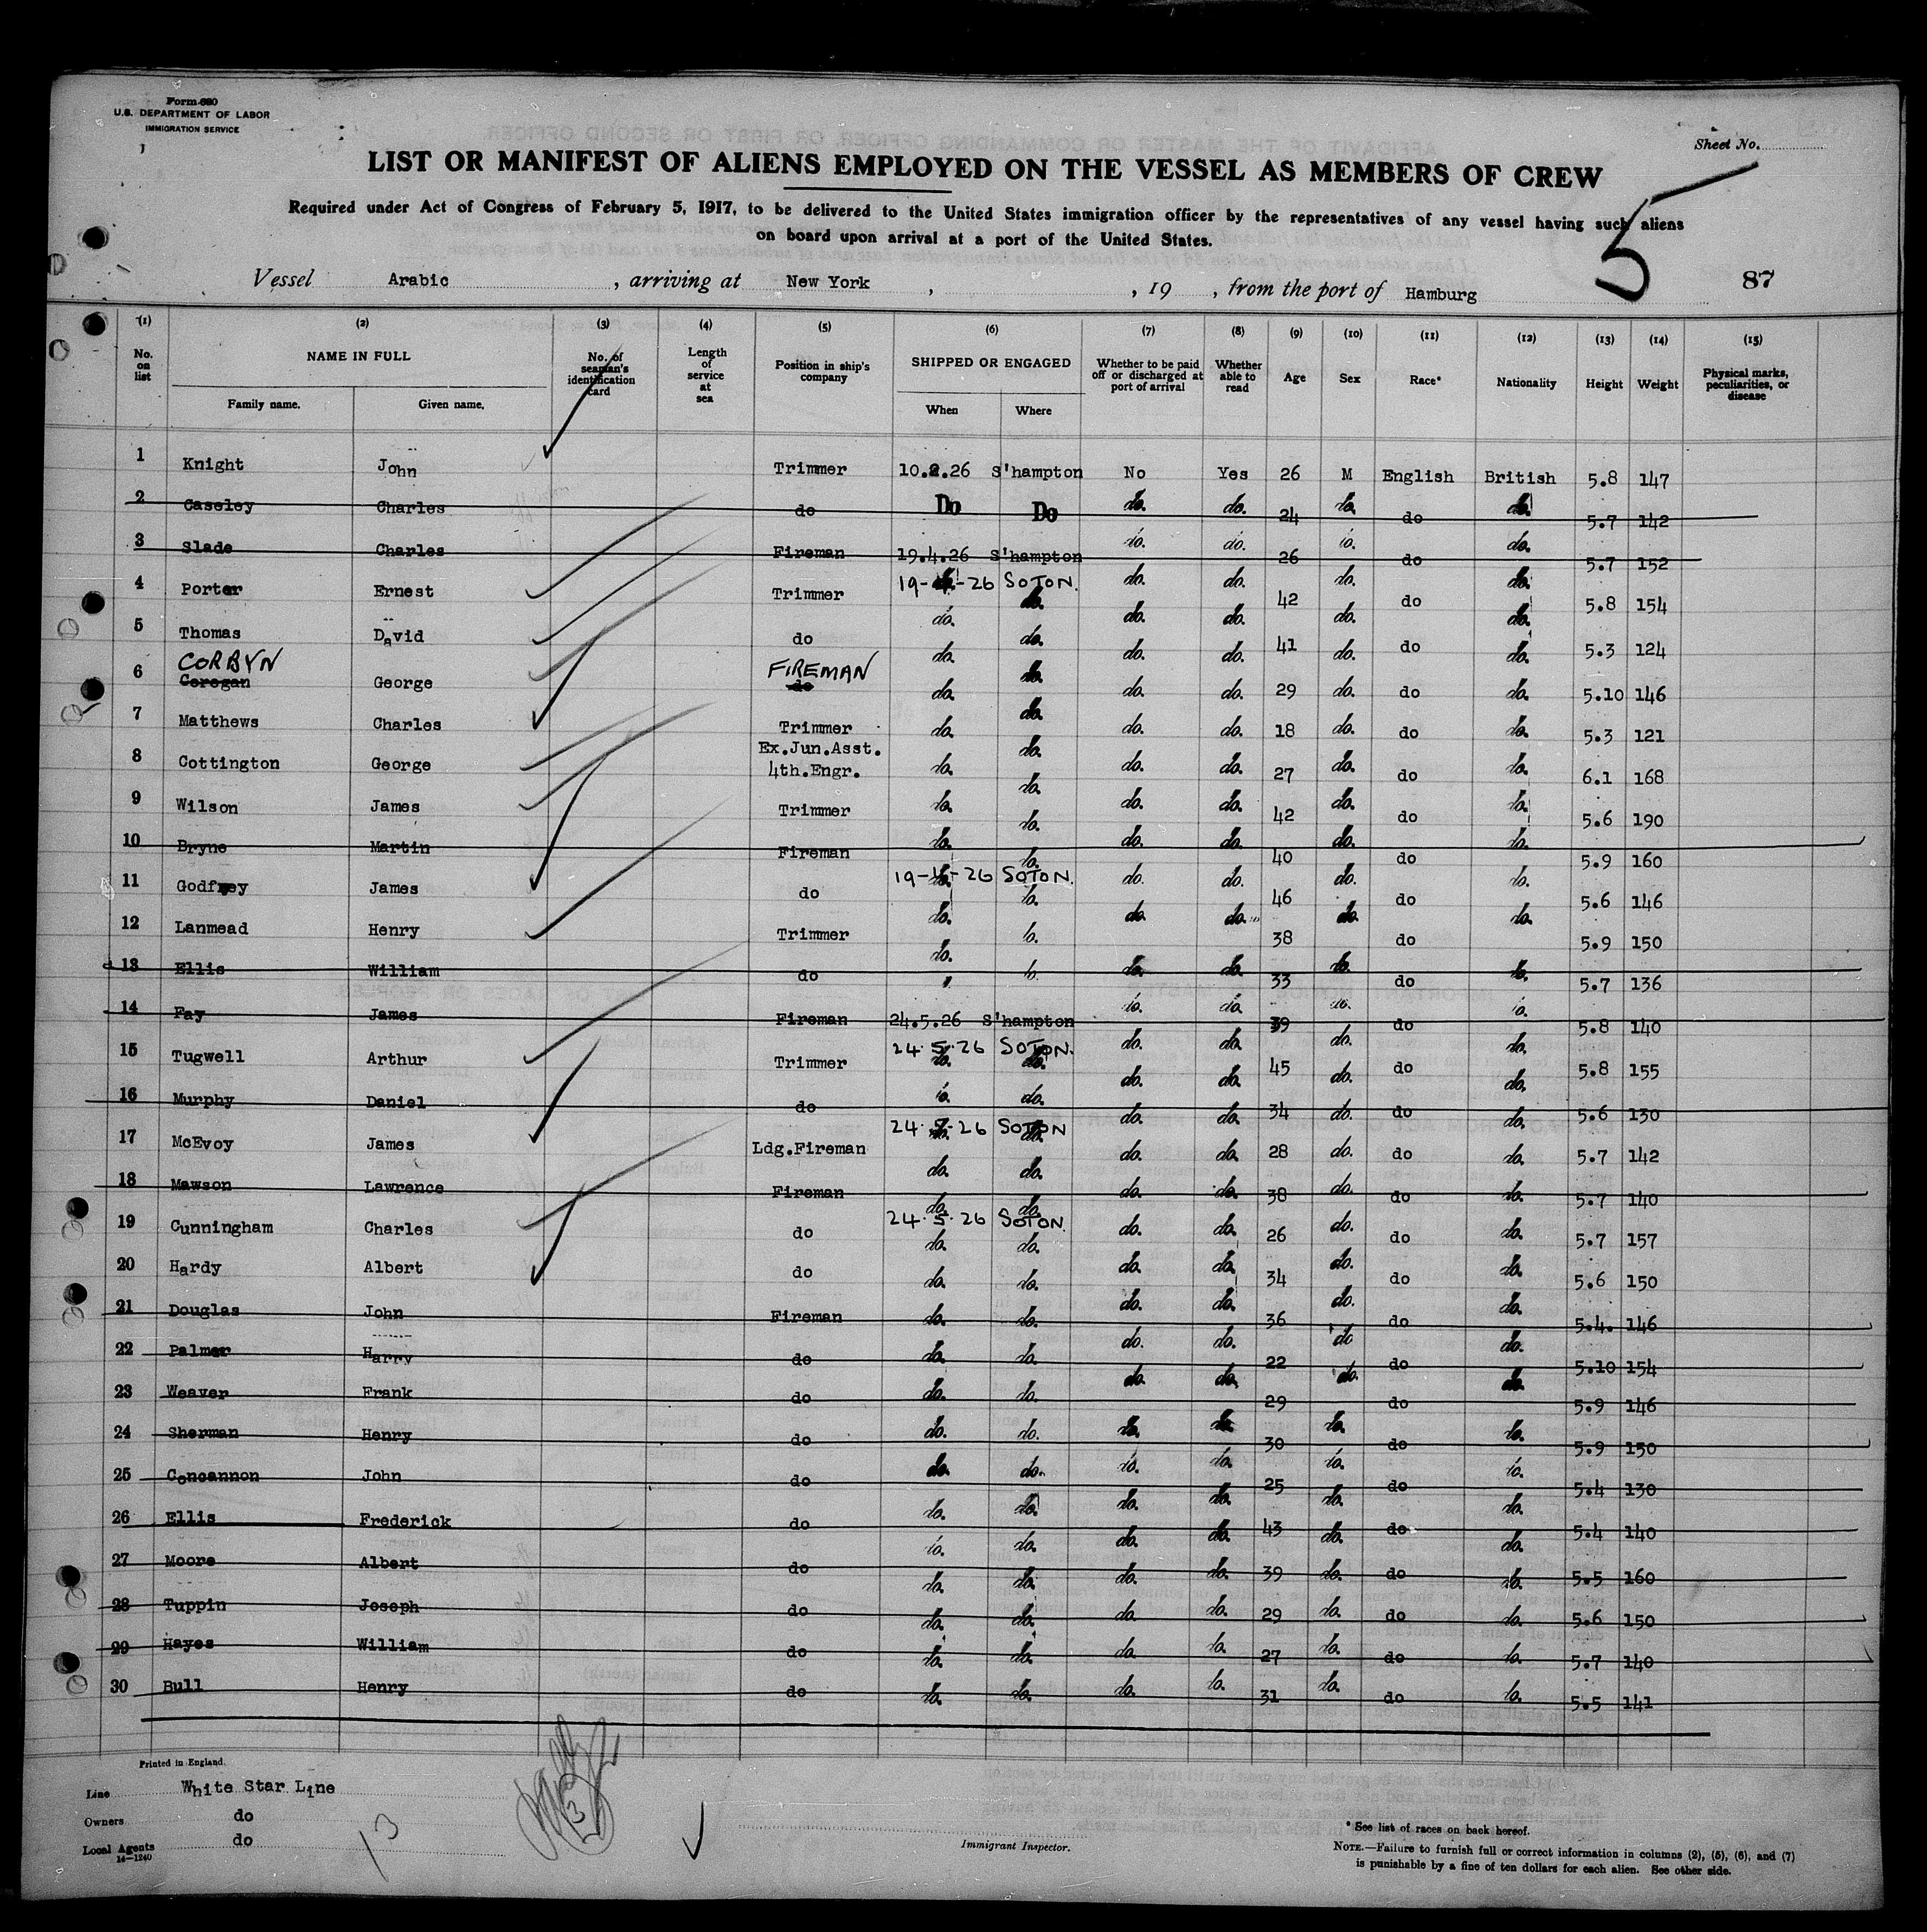 Form 680
U.S. DEPARTMENT OF LABOR
IMMIGRATION SERVICE
Sheet No.
LIST OR MANIFEST OF ALIENS EMPLOYED ON THE VESSEL AS MEMBERS OF CREW
Required under Act of Congress of February 5, 1917, to be delivered to the United States immigration officer by the representatives of any vessel having such aliens
on board upon arrival at a port of the United States.
5
Vessel Arabic , arriving at New York , , 19 , from the port of Hamburg 87
(1) (2) (3) (4) (5) (6) (7) (8) (9) (10) (11) (12) (13) (14) (15)
No. on list NAME IN FULL Family name. Given name. No. of seaman's identification card Length of service at sea Position in ship's company SHIPPED OR ENGAGED When Where Whether to be paid off or discharged at port of arrival Whether able to read Age Sex Race* Nationality Height Weight Physical marks, peculiarities, or disease
1 Knight John Trimmer 10.2.26 S'hampton No Yes 26 M English British 5.8 147
2 Caseley Charles do Do Do do. do. 24 do. do do. 5.7 142
3 Slade Charles Fireman 19.4.26 S'hampton do. do. 26 do. do do. 5.7 152
4 Porter Ernest Trimmer 19-4-26 SOTON. do. do. 42 do. do do. 5.8 154
5 Thomas David do do. do. do. do. 41 do. do do. 5.3 124
CORBYN FIREMAN
6 Coregan George do do. do. do. do. 29 do. do do. 5.10 146
7 Matthews Charles Trimmer do. do. do. do. 18 do. do do. 5.3 121
8 Cottington George Ex.Jun.Asst. 4th.Engr. do. do. do. do. 27 do. do do. 6.1 168
9 Wilson James Trimmer do. do. do. do. 42 do. do do. 5.6 190
10 Bryne Martin Fireman do. do. do. do. 40 do. do do. 5.9 160
11 Godfrey James do 19-4-26 SOTON. do. do. 46 do. do do. 5.6 146
12 Lanmead Henry Trimmer do. do. do. do. 38 do. do do. 5.9 150
13 Ellis William do do. do. do. do. 33 do. do do. 5.7 136
14 Fay James Fireman 24.5.26 S'hampton do. do. 39 do. do do. 5.8 140
15 Tugwell Arthur Trimmer 24.5.26 SOTON. do. do. 45 do. do do. 5.8 155
16 Murphy Daniel do do. do. do. do. 34 do. do do. 5.6 130
17 McEvoy James Ldg.Fireman 24.5.26 SOTON do. do. 28 do. do do. 5.7 142
18 Mawson Lawrence Fireman do. do. do. do. 38 do. do do. 5.7 140
19 Cunningham Charles do 24.5.26 SOTON. do. do. 26 do. do do. 5.7 157
20 Hardy Albert do do. do. do. do. 34 do. do do. 5.6 150
21 Douglas John Fireman do. do. do. do. 36 do. do do. 5.4. 146
22 Palmer Harry do do. do. do. do. 22 do do do. 5.10 154
23 Weaver Frank do do. do. do. do. 29 do. do do. 5.9 146
24 Sherman Henry do do. do. do. do. 30 do. do do. 5.9 150
25 Concannon John do do. do. do. do. 25 do. do do. 5.4 130
26 Ellis Frederick do do. do. do. do. 43 do. do do. 5.4 140
27 Moore Albert do do. do. do. do. 39 do. do do. 5.5 160
28 Tuppin Joseph do do. do. do. do. 29 do. do do. 5.6 150
29 Hayes William do do. do. do. do. 27 do. do do. 5.7 140
30 Bull Henry do do. do. do. do. 31 do. do do. 5.5 141
Printed in England.
Line White Star Line
Owners do
Local Agents do
14-1240
13
13
Immigrant Inspector.
* See list of races on back hereof.
NOTE.—Failure to furnish full or correct information in columns (2), (5), (6), and (7)
is punishable by a fine of ten dollars for each alien. See other side.